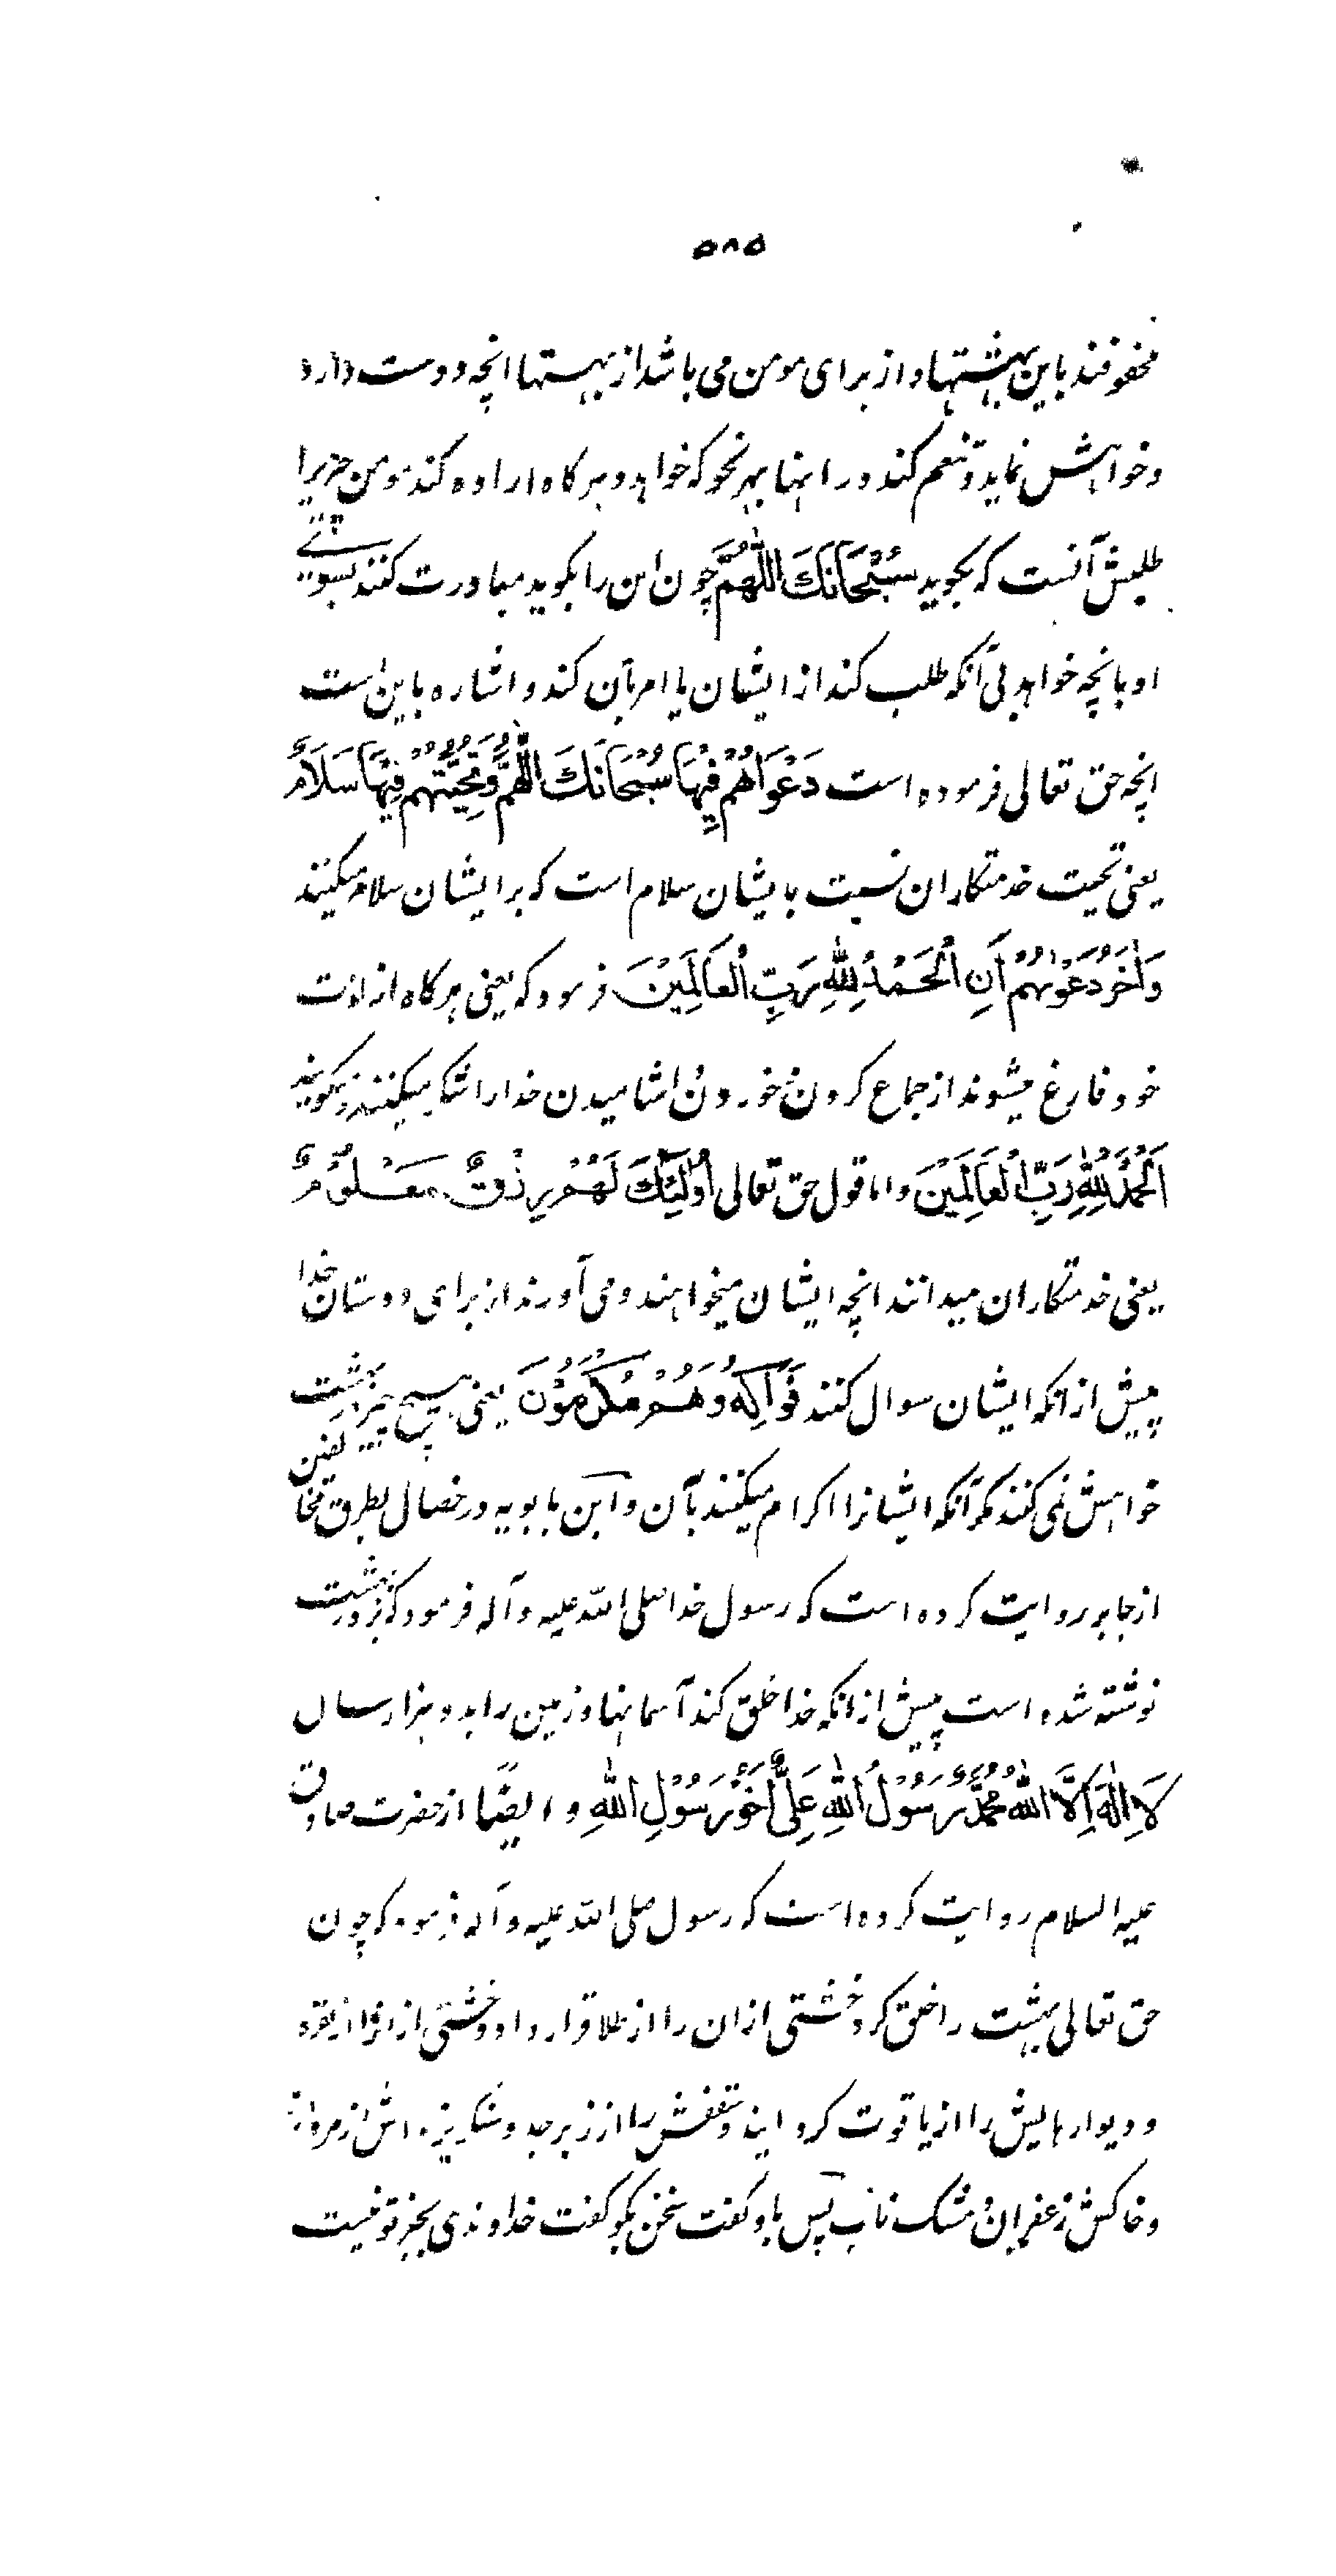 ۵۸۵
محفوفند باین بهشتها و از برای مومن می باشد از بهشتها انچه دوست دارد
و خواهش نماید و تنعم کند در انها بهر نحو که خواهد و هر کاه اراده کند مومن چیزیرا
طلبش آنست که بکوید سُبْحَانَكَ اللّٰهُمَّ چون این را بکوید مبادرت کنند بسوئے
او بانچه خواهد بی آنکه طلب کند از ایشان یا امر بآن کند و اشاره باین است
انچه حق تعالی فرموده است دَعْوَاهُمْ فِيْهَا سُبْحَانَكَ اللّٰهُمَّ وَتَحِيَّتُهُمْ فِيْهَا سَلَامٌ
یعنی تحیت خدمتکاران نسبت بایشان سلام است که بر ایشان سلام میکنند
وَاٰخِرُ دَعْوٰىهُمْ اَنِ الْحَمْدُ لِلّٰهِ رَبِّ الْعَالَمِيْنَ فرمود که یعنی هر کاه از لذت
خود فارغ میشوند از جماع کردن و خوردن و اشامیدن خدا را شکر میکنند و میکویند
اَلْحَمْدُ لِلّٰهِ رَبِّ الْعَالَمِيْنَ و اما قول حق تعالی اُولٰٓئِكَ لَهُمْ رِزْقٌ مَعْلُوْمٌ
یعنی خدمتکاران میدانند انچه ایشان میخواهند و می آورند از برای دوستان خدا
پیش از انکه ایشان سوال کنند فَوَاكِهُ وَهُمْ مُكْرَمُوْنَ یعنی هیچ چیز در بهشت
خواهش نمی کنند مکر آنکه ایشانرا اکرام میکنند بآن و ابن بابویه در خصال بطریق مخالفین
از جابر روایت کرده است که رسول خدا صلی الله علیه و آله فرمود که بر در بهشت
نوشته شده است پیش از انکه خدا خلق کند آسمانها و زمین را بدو هزار سال
لَا اِلٰهَ اِلَّا اللّٰهُ مُحَمَّدٌ رَسُوْلُ اللّٰهِ عَلِيٌّ اَخُوْ رَسُوْلِ اللّٰهِ و ایضًا از حضرت صادق
علیه السلام روایت کرده است که رسول صلی الله علیه و آله فرمود که چون
حق تعالی بهشت را خلق کرد خشتی از ان را از طلا قرار داد و خشتی از انرا از نقره
و دیوارهایش را از یاقوت کردانید و سقفش را از زبرجد و سنکریزه اش از مروارید
و خاکش زعفران و مشک ناب پس باو کفت سخن بکو کفت خداوندی بجز تو نیست